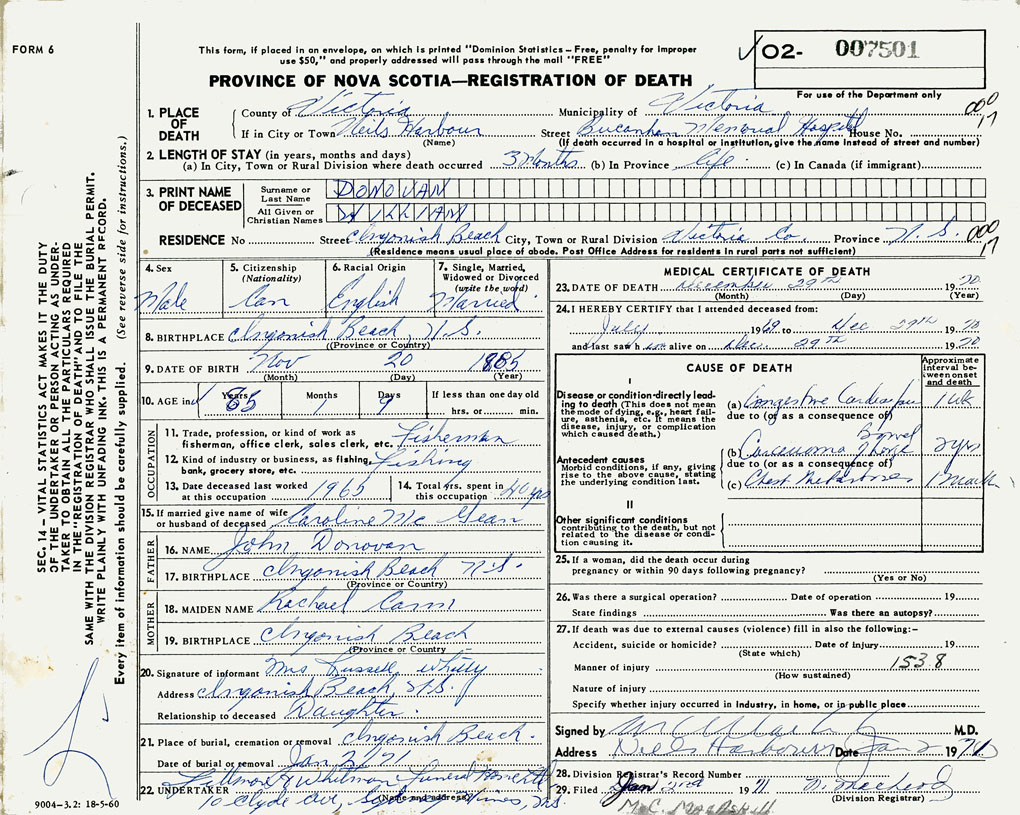 FORM 6
This form, if placed in an envelope, on which is printed "Dominion Statistics – Free, penalty for improper
use $50," and properly addressed will pass through the mail "FREE"
✓ O2- 007501
For use of the Department only
PROVINCE OF NOVA SCOTIA—REGISTRATION OF DEATH
1. PLACE OF DEATH
County of Victoria Municipality of Victoria 000
If in City or Town Neils Harbour Street Bucanhan Memorial Hospital House No. 17
(Name) (If death occurred in a hospital or institution, give the name instead of street and number)
2. LENGTH OF STAY (in years, months and days)
(a) In City, Town or Rural Division where death occurred 3 Months (b) In Province Life (c) In Canada (if immigrant)
3. PRINT NAME OF DECEASED
Surname or Last Name DONOVAN
All Given or Christian Names WILLIAM
RESIDENCE No Street Ingonish Beach City, Town or Rural Division Victoria Co. Province N. S. 000 17
(Residence means usual place of abode. Post Office Address for residents in rural parts not sufficient)
4. Sex Male
5. Citizenship (Nationality) Can
6. Racial Origin English
7. Single, Married, Widowed or Divorced (write the word) Married
8. BIRTHPLACE Ingonish Beach, N.S.
(Province or Country)
9. DATE OF BIRTH Nov 20 1885
(Month) (Day) (Year)
10. AGE in Years 85 Months 1 Days 9 If less than one day old
hrs. or min.
OCCUPATION
11. Trade, profession, or kind of work as
fisherman, office clerk, sales clerk, etc. Fisherman
12. Kind of industry or business, as fishing,
bank, grocery store, etc. Fishing
13. Date deceased last worked at this occupation 1965
14. Total yrs. spent in this occupation 40 yrs
15. If married give name of wife
or husband of deceased Caroline Mc Gean
FATHER
16. NAME John Donovan
17. BIRTHPLACE Ingonish Beach N.S.
(Province or Country)
MOTHER
18. MAIDEN NAME Rachael Cann
19. BIRTHPLACE Ingonish Beach
(Province or Country)
20. Signature of informant Mrs Russell Whitty
Address Ingonish Beach, N.S.
Relationship to deceased Daughter.
21. Place of burial, cremation or removal Ingonish Beach.
Date of burial or removal Jan 2/71
22. UNDERTAKER Whitman Funeral Home
(Name and address)
10 Clyde Ave, Sydney Mines, N.S.
9004-3.2: 18-5-60
MEDICAL CERTIFICATE OF DEATH
23. DATE OF DEATH December 29th 1970
(Month) (Day) (Year)
24. I HEREBY CERTIFY that I attended deceased from:
July 1969 to Dec 29th 1970
and last saw h im alive on Dec. 29th 1970
CAUSE OF DEATH
Approximate interval between onset and death
I
Disease or condition directly leading to death (This does not mean the mode of dying, e.g., heart failure, asthenia, etc. It means the disease, injury, or complication which caused death.)
(a) Congestive Cardiac 1 wk
due to (or as a consequence of)
Antecedent causes
Morbid conditions, if any, giving rise to the above cause, stating the underlying condition last.
(b) Carcinoma Large Bowel 2 yrs
due to (or as a consequence of)
(c) Chest Metastases 1 month
II
Other significant conditions
contributing to the death, but not related to the disease or condition causing it.
25. If a woman, did the death occur during
pregnancy or within 90 days following pregnancy?
(Yes or No)
26. Was there a surgical operation? Date of operation 19
State findings Was there an autopsy?
27. If death was due to external causes (violence) fill in also the following:–
Accident, suicide or homicide? Date of injury 19
(State which)
Manner of injury 1538
(How sustained)
Nature of injury
Specify whether injury occurred in industry, in home, or in public place
Signed by M.D.
Address Neils Harbour Date Jan 2 1971
28. Division Registrar's Record Number
29. Filed Jan 2nd 1971
(Division Registrar)
M. C. MacAskill
SEC. 14 – VITAL STATISTICS ACT MAKES IT THE DUTY
OF THE UNDERTAKER OR PERSON ACTING AS UNDER-
TAKER TO OBTAIN ALL THE PARTICULARS REQUIRED
IN THE "REGISTRATION OF DEATH" AND TO FILE THE
SAME WITH THE DIVISION REGISTRAR WHO SHALL ISSUE THE BURIAL PERMIT.
WRITE PLAINLY WITH UNFADING INK. THIS IS A PERMANENT RECORD.
Every item of information should be carefully supplied. (See reverse side for instructions.)